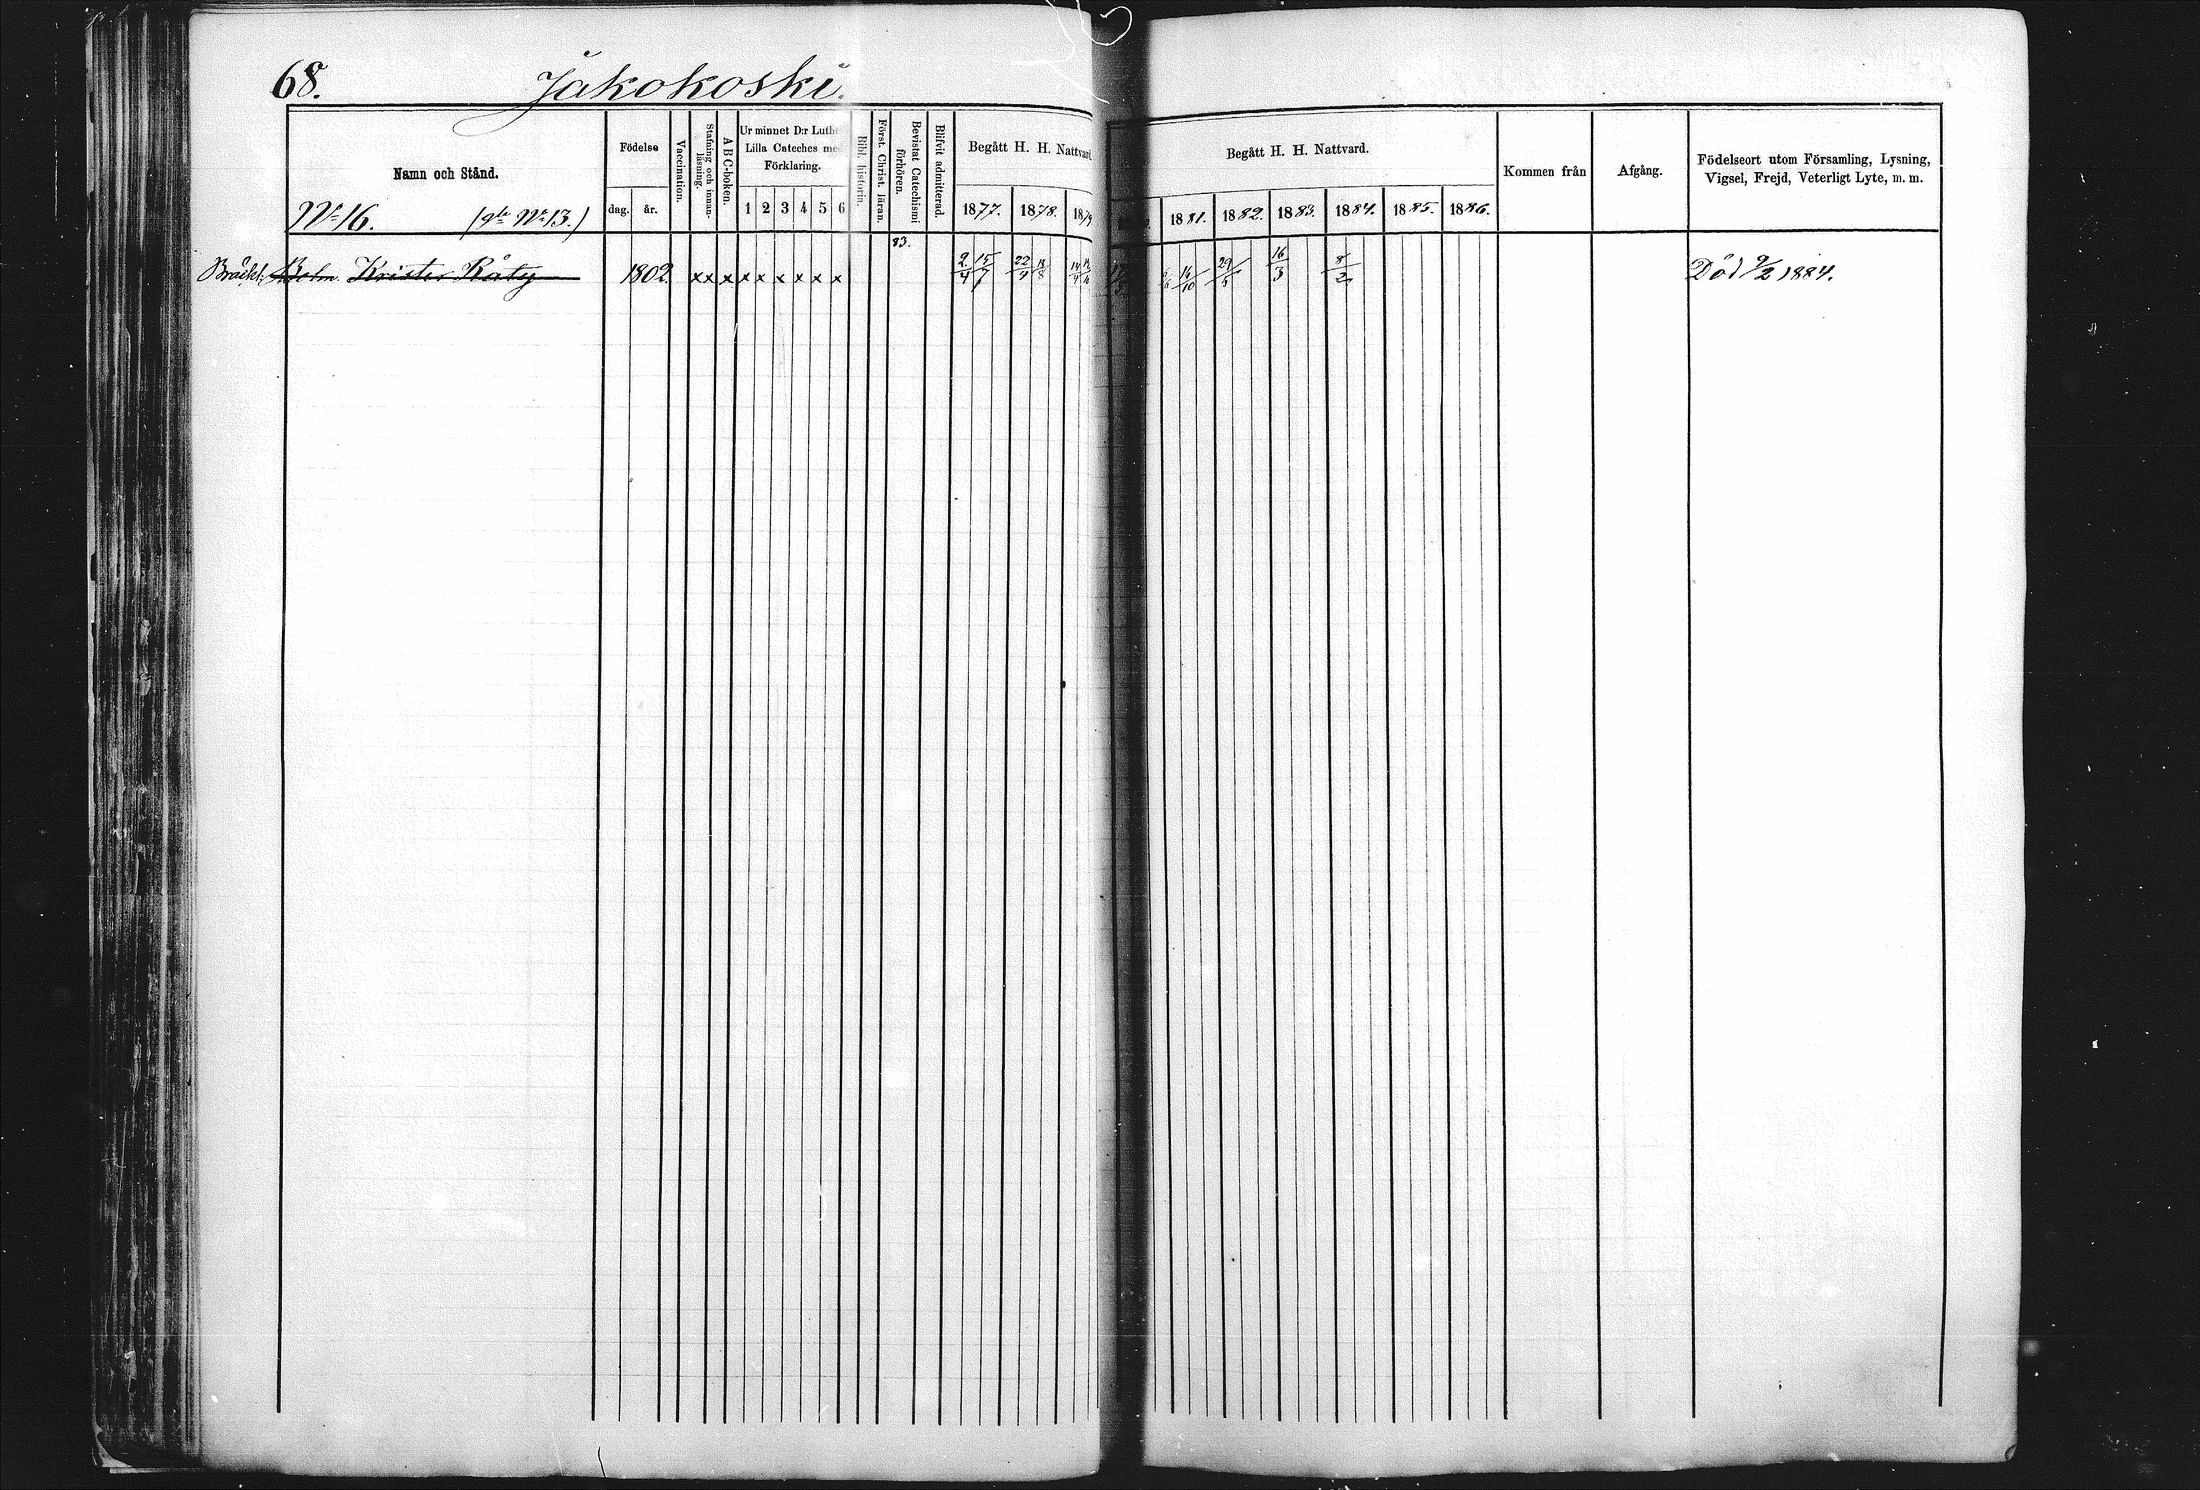 68. Jakokoski.
Namn och Stånd.
Nr 16. (gle Nr 13.)
Födelse
dag. år.
Vaccination.
Stafning och innan-läsning.
A B C-boken.
Ur minnet D:r Luth
Lilla Cateches me
Förklaring.
1 2 3 4 5 6
Bibl. historia.
Först. Christ. läran.
Bevistat Catechismi förhören.
Blifvit admitterad.
Begått H. H. Nattvard.
1877. 1878. 1879
Begått H. H. Nattvard.
1881. 1882. 1883. 1884. 1885. 1886.
Kommen från
Afgång.
Födelseort utom Församling, Lysning,
Vigsel, Frejd, Veterligt Lyte, m. m.
83.
Bräckl. Krister Räty 1802 x x x x x x x x x 2/4 15/7 22/9 18/8 16/10 29/5 16/3 8/2 Död 9/2 1884.